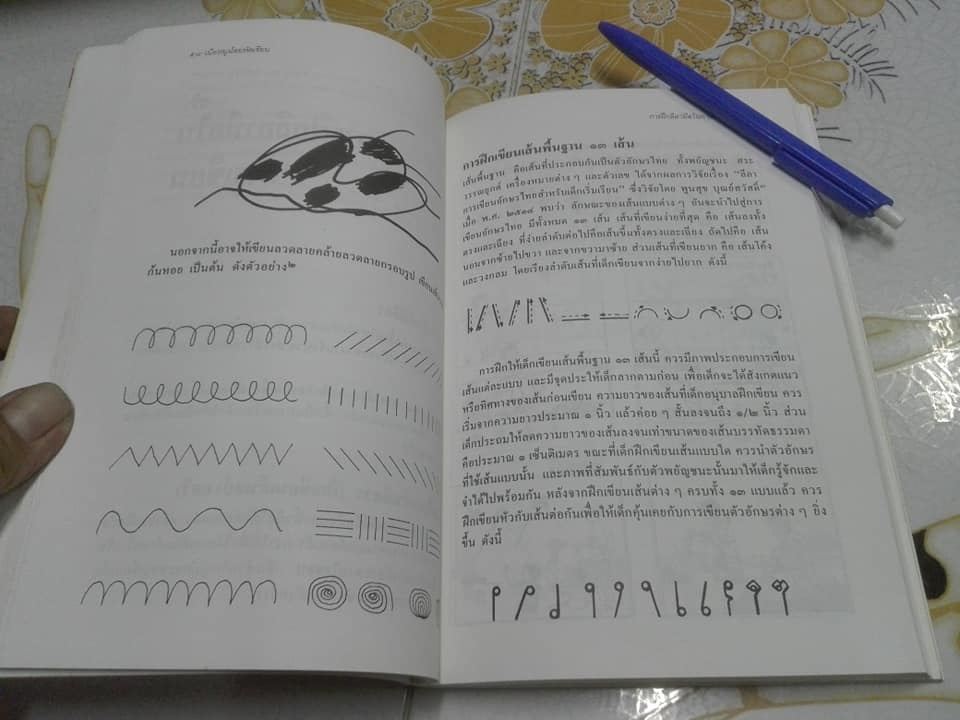 ๔๘ เมื่อหนูน้อยหัดเขียน
นอกจากนี้อาจให้เขียนลวดลายคล้ายลวดลายกรอบรูป เขียนเส้น
ก้นหอย เป็นต้น ดังตัวอย่าง๒
การฝึกลีลามือในการ
การฝึกเขียนเส้นพื้นฐาน ๑๓ เส้น
เส้นพื้นฐาน คือเส้นที่ประกอบกันเป็นตัวอักษรไทย ทั้งพยัญชนะ สระ
วรรณยุกต์ เครื่องหมายต่าง ๆ และตัวเลข ได้จากผลการวิจัยเรื่อง "ลีลา
การเขียนอักษรไทยสำหรับเด็กเริ่มเรียน" ซึ่งวิจัยโดย พูนสุข บุณย์สวัสดิ์"
เมื่อ พ.ศ. ๒๕๑๘ พบว่า ลักษณะของเส้นแบบต่าง ๆ อันจะนำไปสู่การ
เขียนอักษรไทย มีทั้งหมด ๑๓ เส้น เส้นที่เขียนง่ายที่สุด คือ เส้นลงทั้ง
ตรงและเฉียง ที่ง่ายลำดับต่อไปคือเส้นขึ้นทั้งตรงและเฉียง ถัดไปคือ เส้น
นอนจากซ้ายไปขวา และจากขวามาซ้าย ส่วนเส้นที่เขียนยาก คือ เส้นโค้ง
และวงกลม โดยเรียงลำดับเส้นที่เด็กเขียนจากง่ายไปยาก ดังนี้
การฝึกให้เด็กเขียนเส้นพื้นฐาน ๑๓ เส้นนี้ ควรมีภาพประกอบการเขียน
เส้นแต่ละแบบ และมีจุดประให้เด็กลากตามก่อน เพื่อเด็กจะได้สังเกตแนว
หรือทิศทางของเส้นก่อนเขียน ความยาวของเส้นที่เด็กอนุบาลฝึกเขียน ควร
เริ่มจากความยาวประมาณ ๑ นิ้ว แล้วค่อย ๆ สั้นลงจนถึง ๑/๒ นิ้ว ส่วน
เด็กประถมให้ลดความยาวของเส้นลงจนเท่าขนาดของเส้นบรรทัดธรรมดา
คือประมาณ ๑ เซ็นติเมตร ขณะที่เด็กฝึกเขียนเส้นแบบใด ควรนำตัวอักษร
ที่ใช้เส้นแบบนั้น และภาพที่สัมพันธ์กับตัวพยัญชนะนั้นมาให้เด็กรู้จักและ
จำได้ไปพร้อมกัน หลังจากฝึกเขียนเส้นต่าง ๆ ครบทั้ง ๑๓ แบบแล้ว ควร
ฝึกเขียนหัวกับเส้นต่อกันเพื่อให้เด็กคุ้นเคยกับการเขียนตัวอักษรต่าง ๆ ยิ่ง
ขึ้น ดังนี้